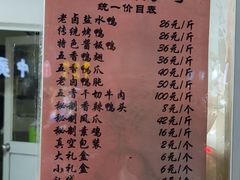 统一价目表
老卤盐水鸭 26元/斤
传统烤鸭 26元/斤
特色酱板鸭 36元/斤
五香鸭翅 40元/斤
五香鸭爪 40元/斤
老卤鸭肫 50元/斤
五香干切牛肉 100元/斤
秘制香辣鸭头 8元/个
秘制凤爪 42元/斤
秘制素鸡 16元/斤
真空包装 2元/个
大礼盒 6元/个
小礼盒